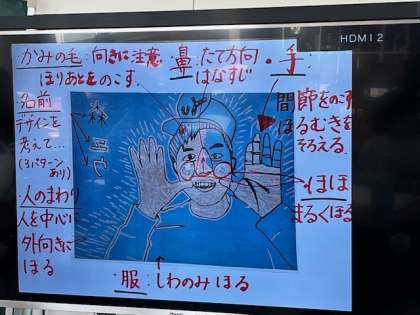 HDMI 2
かみの毛:向きに注意
ほりあとをのこす.
鼻:たて方向
はなすじ
・手:
間節をのこす
ほるむきを
そろえる.
名前
デザインを
考えて…
(3パターン
あり)
森
人のまわり
人を中心に
外向きに
ほる
ほほ
まるくほる
服:しわのみほる